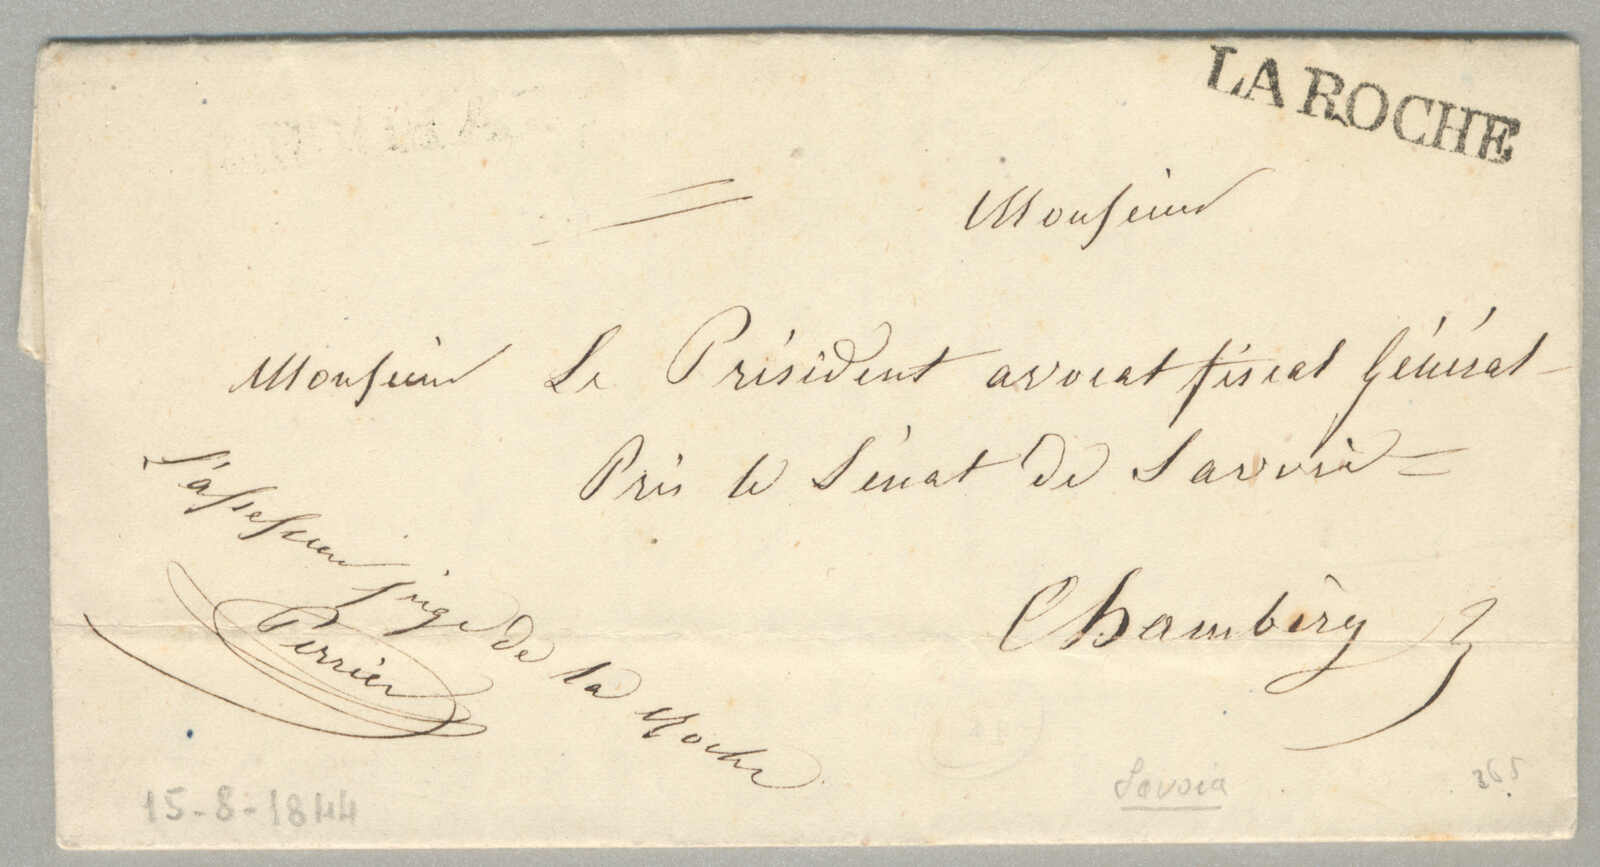 LA ROCHE
Monsieur
Monsieur Le Président avocat fiscal Général
Près le Sénat de Savoie
Chambéry
L'assesseur juge de la Roche
Perrier
15-8-1844
Savoia
365